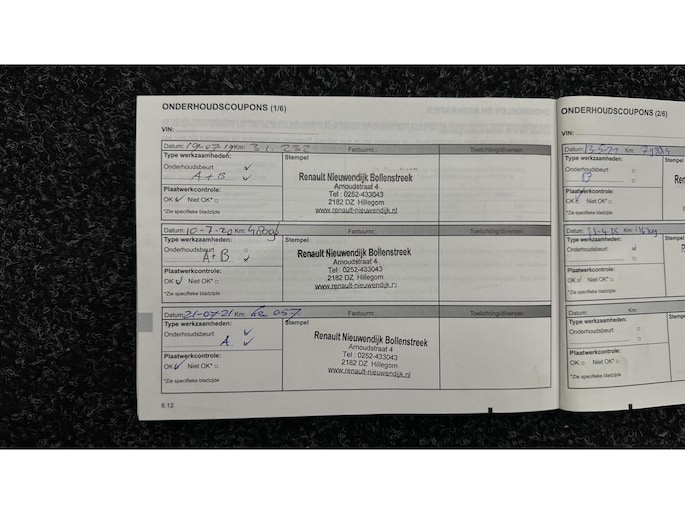 ONDERHOUDSCOUPONS (1/6)
VIN:
Datum: 19-07-19 Km: 31.232 Factuurnr.: Toelichting/diversen
Type werkzaamheden: Stempel
Onderhoudsbeurt
A + B
Plaatwerkcontrole:
OK Niet OK*
*Zie specifieke bladzijde
Renault Nieuwendijk Bollenstreek
Arnoudstraat 4
Tel : 0252-433043
2182 DZ Hillegom
www.renault-nieuwendijk.nl
Datum: 10-7-20 Km: Factuurnr.: Toelichting/diversen
Type werkzaamheden: Stempel
Onderhoudsbeurt
A + B
Plaatwerkcontrole:
OK Niet OK*
*Zie specifieke bladzijde
Renault Nieuwendijk Bollenstreek
Arnoudstraat 4
Tel : 0252-433043
2182 DZ Hillegom
www.renault-nieuwendijk.nl
Datum: 21-07-21 Km: 62 057 Factuurnr.: Toelichting/diversen
Type werkzaamheden: Stempel
Onderhoudsbeurt
A
Plaatwerkcontrole:
OK Niet OK*
*Zie specifieke bladzijde
Renault Nieuwendijk Bollenstreek
Arnoudstraat 4
Tel : 0252-433043
2182 DZ Hillegom
www.renault-nieuwendijk.nl
6.12
ONDERHOUDSCOUPONS (2/6)
VIN:
Datum: Km:
Type werkzaamheden:
Onderhoudsbeurt
B
Plaatwerkcontrole:
OK Niet OK*
*Zie specifieke bladzijde
Datum: Km:
Type werkzaamheden:
Onderhoudsbeurt
Plaatwerkcontrole:
OK Niet OK*
*Zie specifieke bladzijde
Datum: Km:
Type werkzaamheden:
Onderhoudsbeurt
Plaatwerkcontrole:
OK Niet OK*
*Zie specifieke bladzijde